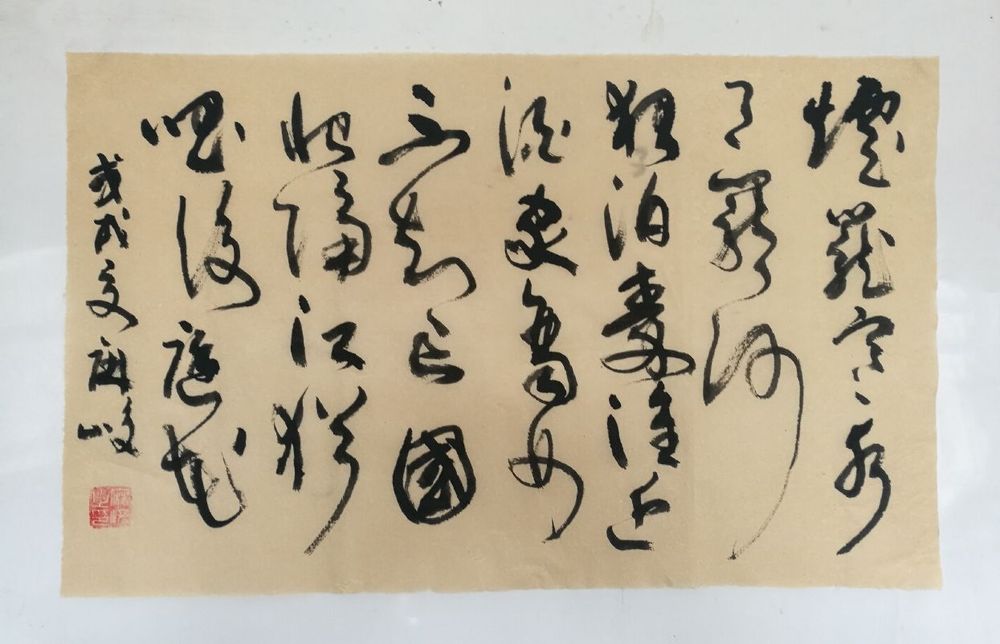 煙籠寒水
月籠沙
夜泊秦淮近
酒家商女
不知亡國
恨隔江猶
唱後庭花
戊戌夏